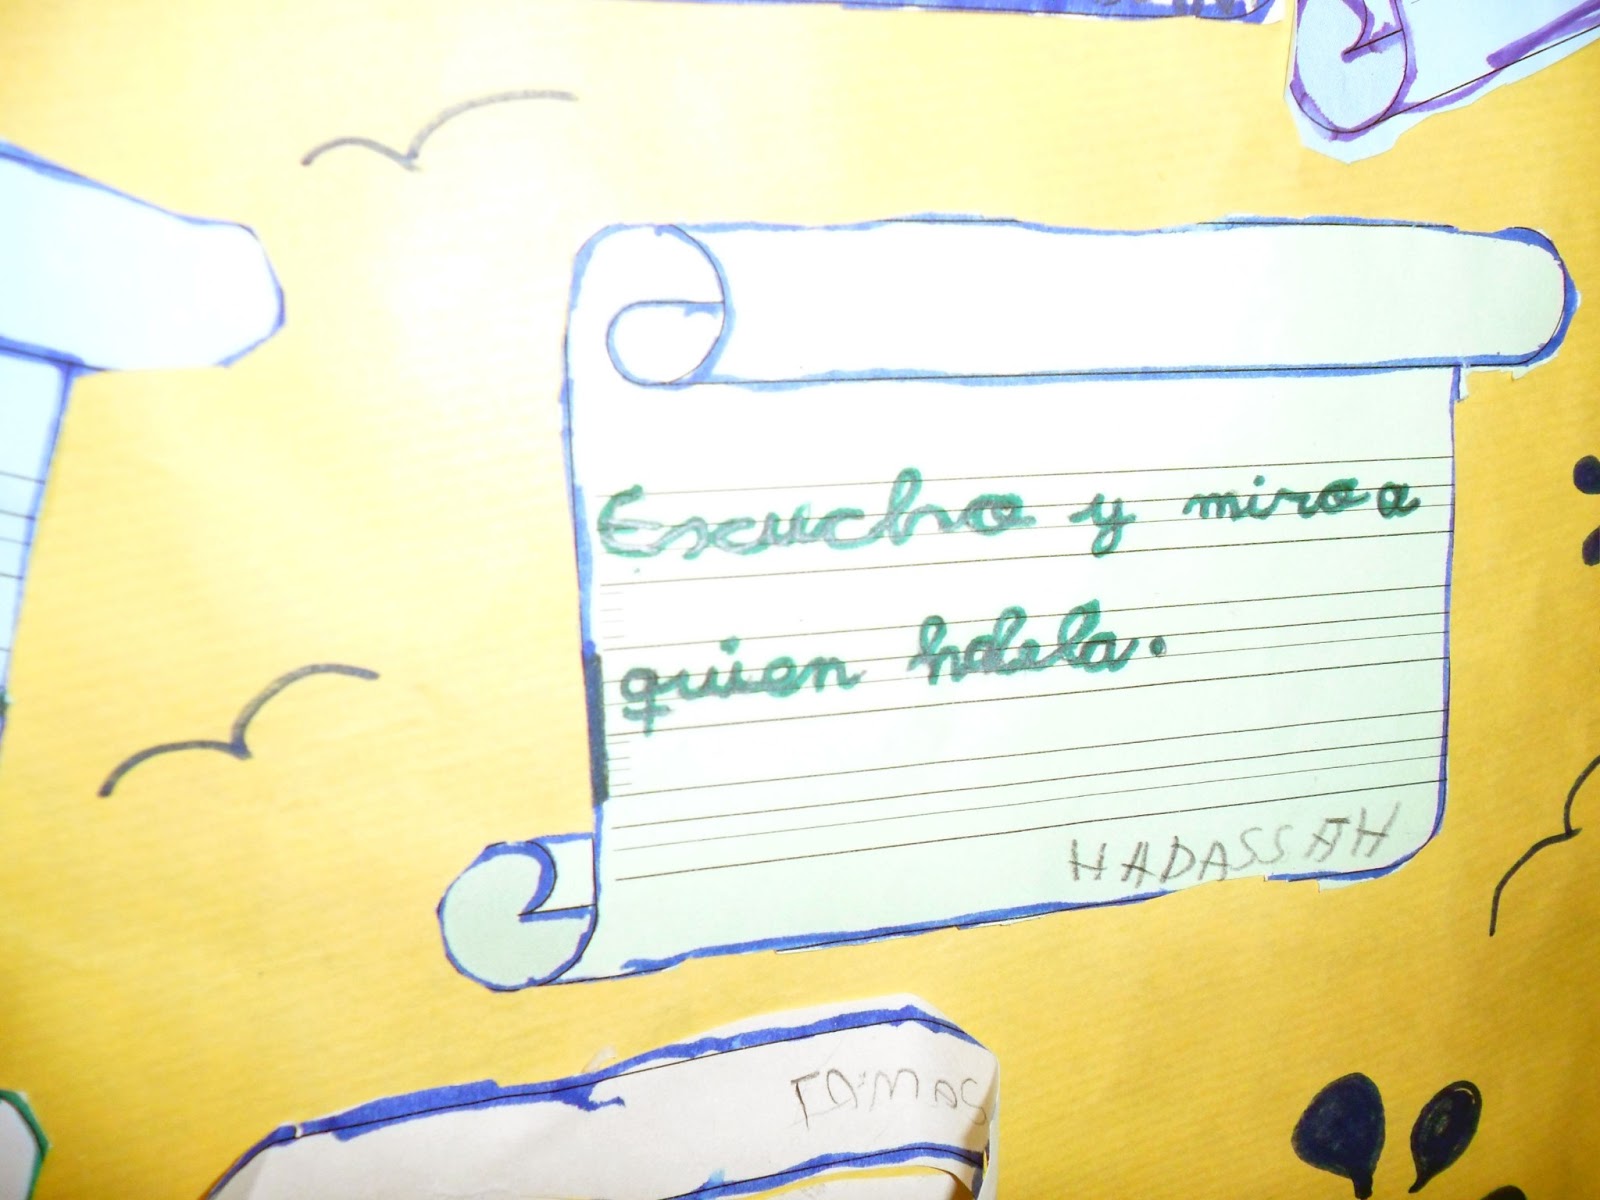 Escucho y miro a
quien habla.
HADASSAH